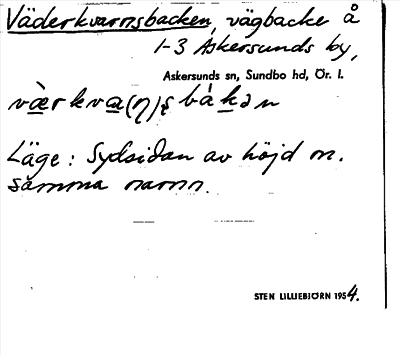 Väderkvarnsbacken, vägbacke å
1-3 Askersunds by,
Askersunds sn, Sundbo hd, Ör. l.
Läge: Sydsidan av höjd m.
samma namn.
STEN LILLIEBJÖRN 1954.